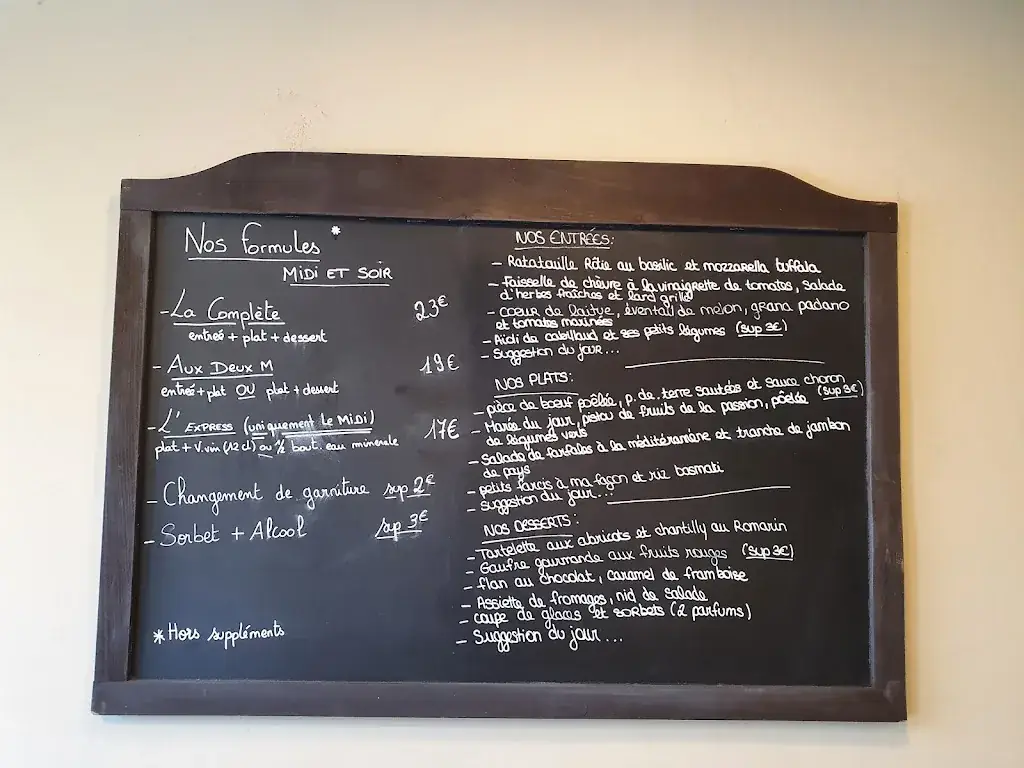 Nos formules *
MIDI ET SOIR
- La Complète 23€
entreé + plat + dessert
- AUX DEUX M 19€
entreé + plat OU plat + dessert
- L'EXPRESS (uniquement le MIDI) 17€
plat + V. vin (12 cl) ou 1/2 bout. eau minérale
- Changement de garniture sup 2€
- Sorbet + Alcool sup 3€
* Hors suppléments
NOS ENTRÉES:
- Ratatouille Rôtie au basilic et mozzarella buffala
- Faisselle de chèvre à la vinaigrette de tomates, salade
d'herbes fraîches et lard grillé
- coeur de laitue, éventail de melon, grana padano
et tomates marinées
- Aïoli de cabillaud et ses petits légumes (sup 3€)
- Suggestion du jour...
NOS PLATS:
- pièce de boeuf poêlée, p. de terre sautées et sauce choron (sup 3€)
- Marée du jour, pistou de fruits de la passion, poêlée
de légumes verts
- Salade de farfales à la méditéranéne et tranche de jambon
de pays
- petits farcis à ma façon et riz basmati
- suggestion du jour...
NOS DESSERTS:
- Tartelette aux abricots et chantilly au Romarin
- Gaufre gourmande aux fruits rouges (sup 3€)
- flan au chocolat, caramel de framboise
- Assiette de fromages, nid de salade
- coupe de glaces et sorbets (2 parfums)
- Suggestion du jour...